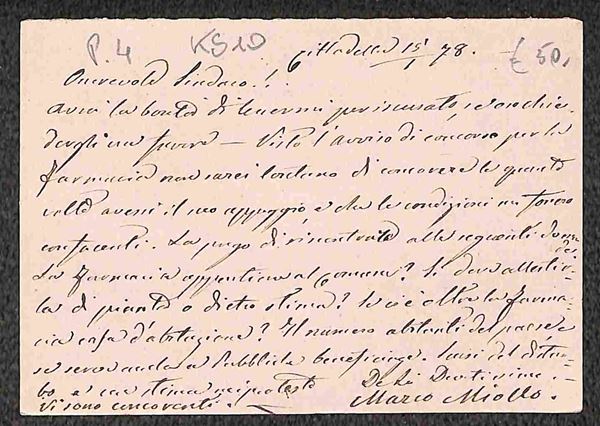 P. 4 KS10 £ 50,
Cittadella 15/1 78.
Onorevole Sindaco!.
Avrà la bontà di tenermi per iscusato, se ardi chie-
dergli un favore — Visto l'avviso di concorso per la
farmacia non sarei lontano di concorrere le quante
volte avessi il suo appoggio e che le condizioni mi fossero
confacenti. La prego di riscontrato alle seguenti doman-
de.
La Farmacia appartiene al Comune? Si deve allestir-
la di pianta o dietro stima? Se vi è oltre la farma-
cia casa d'abitazione? Il numero abitanti del paese e
se serve anche a Pubblica beneficenza. Scusi del distur-
bo e con stima mi protesto
Di Lei Devotissimo
Vi sono concorrenti? — Marco Miollo.